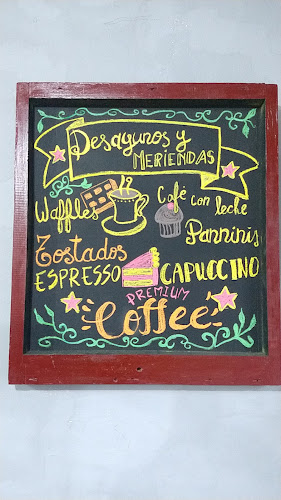 Desayunos y
MERIENDAS
Waffles
Café con leche
Panninis
Tostados
ESPRESSO
CAPUCCINO
PREMIUM
Coffee